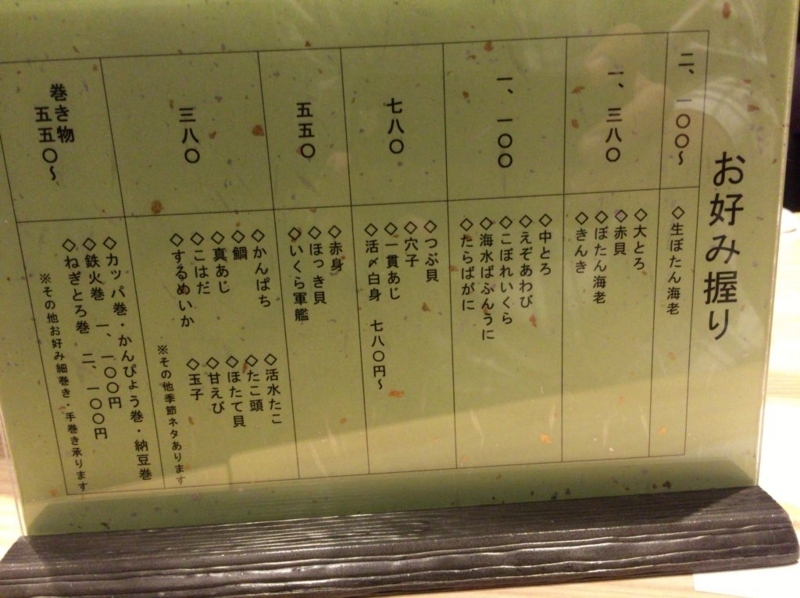 お好み握り
二、一〇〇〜
◇生ぼたん海老
一、三八〇
◇大とろ
◇赤貝
◇ぼたん海老
◇きんき
一、一〇〇
◇中とろ
◇えぞあわび
◇こぼれいくら
◇海水ばふんうに
◇たらばがに
七八〇
◇つぶ貝
◇穴子
◇一貫あじ
◇活〆白身 七八〇円〜
五五〇
◇赤身
◇ほっき貝
◇いくら軍艦
三八〇
◇かんぱち
◇鯛
◇真あじ
◇こはだ
◇するめいか
◇活水たこ
◇たこ頭
◇ほたて貝
◇甘えび
◇玉子
※その他季節ネタあります
巻き物
五五〇〜
◇カッパ巻・かんぴょう巻・納豆巻
◇鉄火巻 一、一〇〇円
◇ねぎとろ巻 二、一〇〇円
※その他お好み細巻き・手巻き承ります